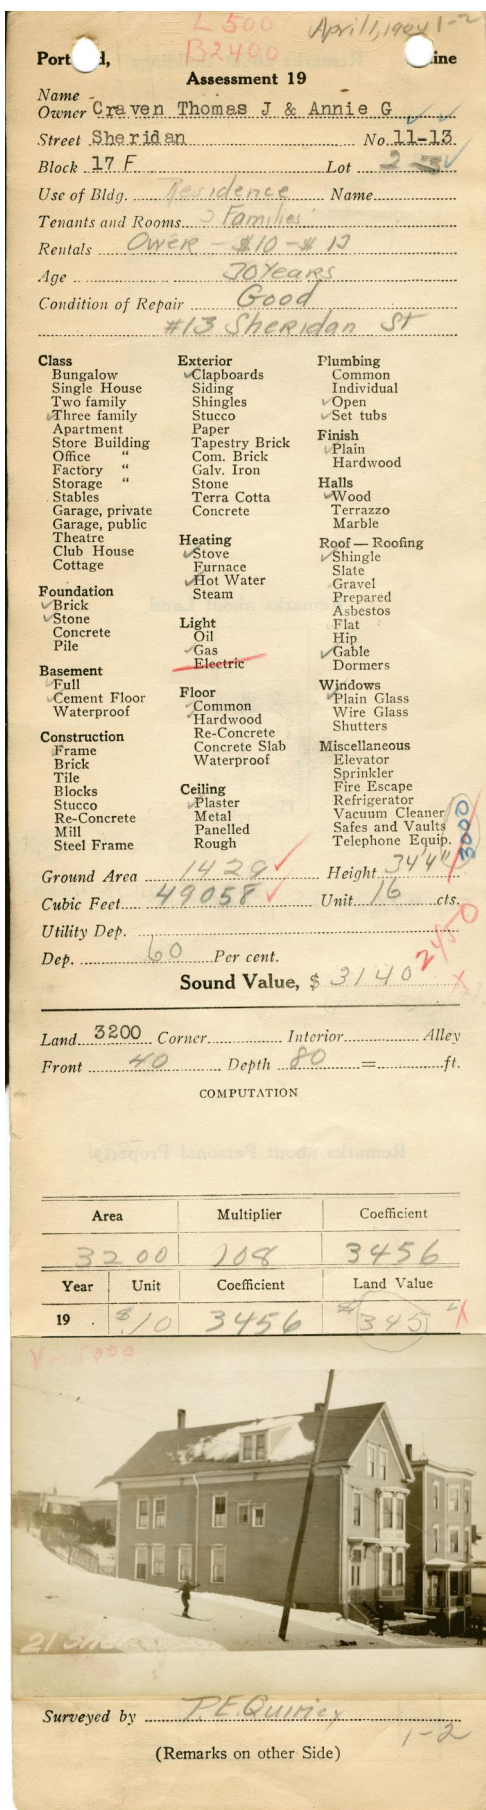 L 500
April 1, 1924 1-2
B2400
Portland, Maine
Assessment 19
Name -
Owner Craven Thomas J & Annie G
Street Sheridan No. 11-13
Block 17 F Lot 2
Use of Bldg. Residence Name
Tenants and Rooms 3 Families
Rentals Owner - $10 - $ 12
Age 30 Years
Condition of Repair Good
#13 Sheridan St
Class
Bungalow
Single House
Two family
✓Three family
Apartment
Store Building
Office "
Factory "
Storage "
Stables
Garage, private
Garage, public
Theatre
Club House
Cottage
Foundation
✓Brick
✓Stone
Concrete
Pile
Basement
✓Full
✓Cement Floor
Waterproof
Construction
✓Frame
Brick
Tile
Blocks
Stucco
Re-Concrete
Mill
Steel Frame
Exterior
✓Clapboards
Siding
Shingles
Stucco
Paper
Tapestry Brick
Com. Brick
Galv. Iron
Stone
Terra Cotta
Concrete
Heating
✓Stove
Furnace
✓Hot Water
Steam
Light
Oil
✓Gas
Electric
Floor
✓Common
✓Hardwood
Re-Concrete
Concrete Slab
Waterproof
Ceiling
✓Plaster
Metal
Panelled
Rough
Plumbing
Common
Individual
✓Open
✓Set tubs
Finish
✓Plain
Hardwood
Halls
✓Wood
Terrazzo
Marble
Roof — Roofing
✓Shingle
Slate
✓Gravel
Prepared
Asbestos
✓Flat
Hip
✓Gable
Dormers
Windows
✓Plain Glass
Wire Glass
Shutters
Miscellaneous
Elevator
Sprinkler
Fire Escape
Refrigerator
Vacuum Cleaner
Safes and Vaults
Telephone Equip.
3000
Ground Area 1429 ✓ Height 34'4"
Cubic Feet 49058 ✓ Unit 16 cts.
Utility Dep.
2450
Dep. 60 Per cent.
Sound Value, $ 3140 x
Land 3200 Corner Interior Alley
Front 40 Depth 80 = ft.
COMPUTATION
Area Multiplier Coefficient
3200 108 3456
Year Unit Coefficient Land Value
19 . $.10 3456 345 x
V- 5000
21
Surveyed by P.E. Quincy
1-2
(Remarks on other Side)